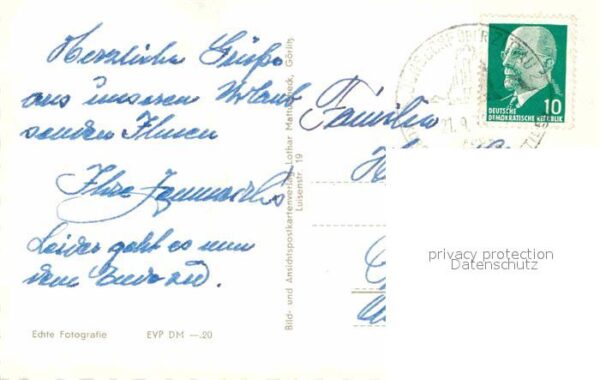 Herzliche Grüße
aus unserem Urlaub
senden Ihnen
Ihre
Leider geht es nun
dem Ende zu.
Echte Fotografie EVP DM —.20
Bild- und Ansichtspostkartenverlag Lothar Görlitz
Luisenstr 19
Familie
ÜBER ZITTAU
10
DEUTSCHE
DEMOKRATISCHE REPUBLIK
privacy protection
Datenschutz